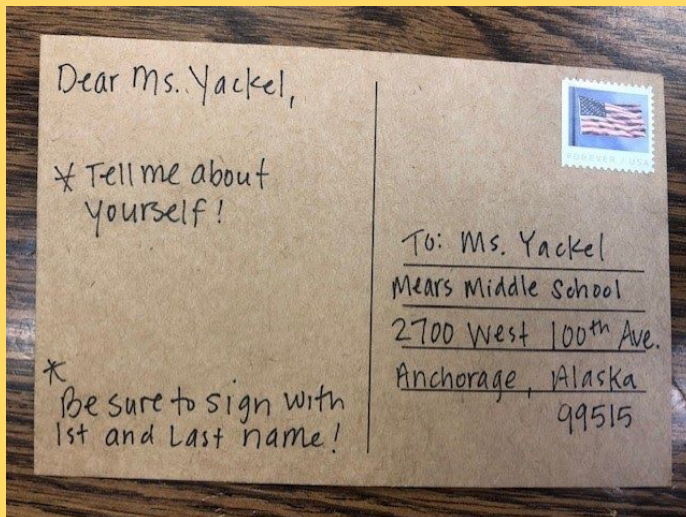 Dear Ms. Yackel,
* Tell me about
yourself!
*
Be sure to sign with
1st and Last name!
FOREVER / USA
To: Ms. Yackel
Mears Middle School
2700 West 100th Ave.
Anchorage, Alaska
99515